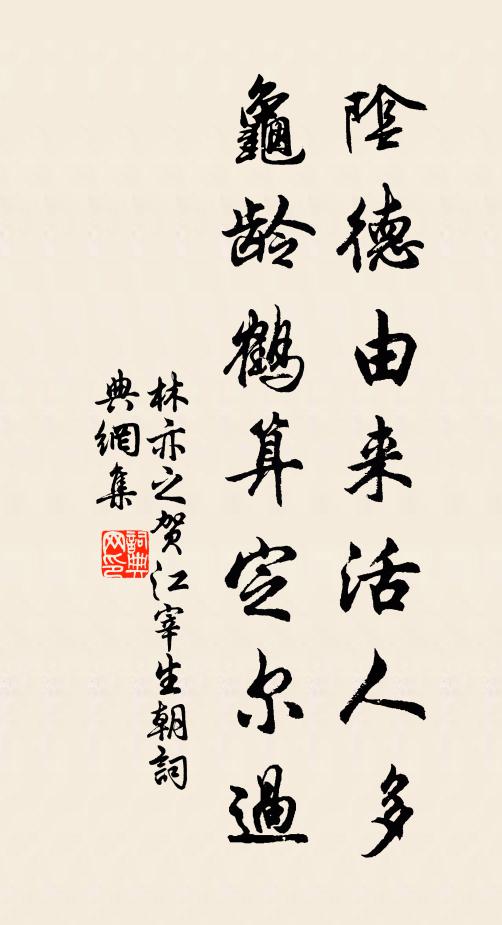 陰德由来活人多
龜龄鶴算定尔過
林亦之贺江宰生朝詞
典網集
詞典
网印